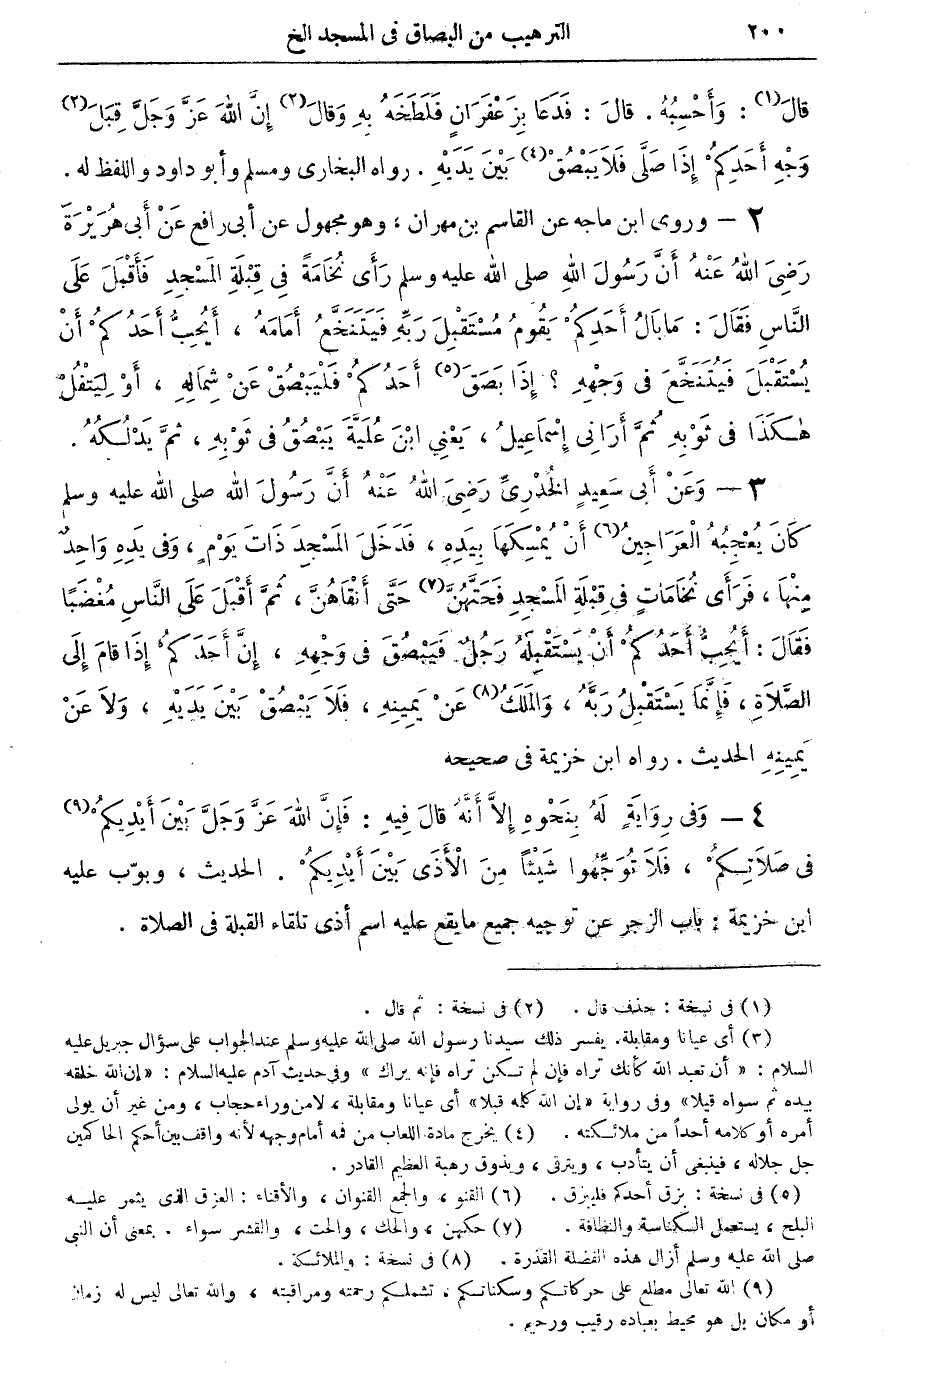 ٢٠٠ الترهيب من البصاق فى المسجد الخ
قَالَ(١) : وَأَحْسِبُهُ . قالَ : فَدَعَا بِزَعْفَرَانٍ فَلَطَخَهُ بِهِ وَقالَ(٢) إِنَّ اللهَ عَزَّ وَجَلَّ قِبَلَ(٣)
وَجْهِ أَحَدِكُمْ إِذَا صَلَّى فَلاَ يَبْصُقْ(٤) بَيْنَ يَدَيْهِ . رواه البخارى ومسلم وأبو داود واللفظ له .
٢ – وروى ابن ماجه عن القاسم بن مهران ، وهو مجهول عن أبى رافع عَنْ أَبِى هُرَيْرَةَ
رَضِىَ اللهُ عَنْهُ أَنَّ رَسُولَ اللهِ صلى الله عليه وسلم رَأَى نُخَامَةً فِي قِبْلَةِ المَسْجِدِ فَأَقْبَلَ عَلَى
النَّاسِ فَقَالَ : مَا بَالُ أَحَدِكُمْ يَقُومُ مُسْتَقْبِلَ رَبِّهِ فَيَتَنَخَّعُ أَمَامَهُ ، أَيُحِبُّ أَحَدُكُمْ أَنْ
يُسْتَقْبَلَ فَيُتَنَخَّعَ فى وَجْهِهِ ؟ إِذَا بَصَقَ(٥) أَحَدُكُمْ فَلْيَبْصُقْ عَنْ شِمَالِهِ ، أَوْ لِيَتْفُلْ
هٰكَذَا فى ثَوْبِهِ ثُمَّ أَرَانِى إِسْمَاعِيلُ ، يَعْنِي ابْنَ عُلَيَّةَ يَبْصُقُ فى ثَوْبِهِ ، ثمَّ يَدْلُكُهُ .
٣ – وَعَنْ أَبى سَعِيدٍ الخُدْرِىِّ رَضِىَ اللهُ عَنْهُ أَنَّ رَسُولَ الله صلى الله عليه وسلم
كَانَ يُعْجِبُهُ الْعَرَاجِينُ(٦) أَنْ يُمْسِكَهَا بِيَدِهِ ، فَدَخَلَ المَسْجِدَ ذَاتَ يَوْمٍ ، وَفى يَدِهِ وَاحِدٌ
مِنْهَا ، فَرَأَى نُخَامَاتٍ فِى قِبْلَةِ المَسْجِدِ فَحَتَّهُنَّ(٧) حَتَّى أَنْقَاهُنَّ ، ثُمَّ أَقْبَلَ عَلَى النَّاسِ مُغْضَبًا
فَقَالَ : أَيُحِبُّ أَحَدُكُمْ أَنْ يَسْتَقْبِلَهُ رَجُلٌ فَيَبْصُقَ فى وَجْهِهِ ، إِنَّ أَحَدَكُمْ إِذَا قامَ إِلَى
الصَّلاَةِ ، فَإِنَّمَا يَسْتَقْبِلُ رَبَّهُ ، وَالمَلَكُ(٨) عَنْ يَمِينِهِ ، فَلاَ يَبْصُقْ بَيْنَ يَدَيْهِ ، وَلاَ عَنْ
يَمِينِهِ الحديث . رواه ابن خزيمة فى صحيحه
٤ – وَفى رِوَايَةٍ لَهُ بِنَحْوِهِ إِلاَّ أَنَّهُ قالَ فِيهِ : فَإِنَّ اللهَ عَزَّ وَجَلَّ بَيْنَ أَيْدِيكُمْ(٩)
فى صَلاَتِكُمْ ، فَلاَ تُوَجِّهُوا شَيْئًا مِنَ الْأَذَى بَيْنَ أَيْدِيكُمْ . الحديث ، وبوّب عليه
ابن خزيمة : باب الزجر عن توجيه جميع مايقع عليه اسم أذى تلقاء القبلة فى الصلاة .
(١) فى نسخة : حذف قال . (٢) فى نسخة : ثم قال .
(٣) أى عيانا ومقابلة. يفسر ذلك سيدنا رسول الله صلى الله عليه وسلم عند الجواب على سؤال جبريل عليه
السلام : « أن تعبد الله كأنك تراه فإن لم تكن تراه فإنه يراك » وفى حديث آدم عليه السلام : « إن الله خلقه
بيده ثم سواه قبلا» وفى رواية «إن الله كلمه قبلا» أى عيانا ومقابلة ، لا من وراء حجاب ، ومن غير أن يولى
أمره أو كلامه أحداً من ملائكته . (٤) يخرج مادة اللعاب من فمه أمام وجهه لأنه واقف بين أحكم الحاكمين
جل جلاله ، فينبغى أن يتأدب ، ويترقى ، ويذوق رهبة العظيم القادر .
(٥) فى نسخة : بزق أحدكم فليبزق . (٦) القنو ، والجمع القنوان ، والأقناء : العزق الذى يثمر عليه
البلح ، يستعمل للكناسة والنظافة . (٧) حكهن ، والحك ، والحت ، والقشر سواء . بمعنى أن النبي
صلى الله عليه وسلم أزال هذه الفضلة القذرة . (٨) فى نسخة : والملائكة .
(٩) الله تعالى مطلع على حركاتكم وسكناتكم ، تشملكم رحمته ومراقبته ، والله تعالى ليس له زمان
أو مكان بل هو محيط بعباده رقيب ورحيم .